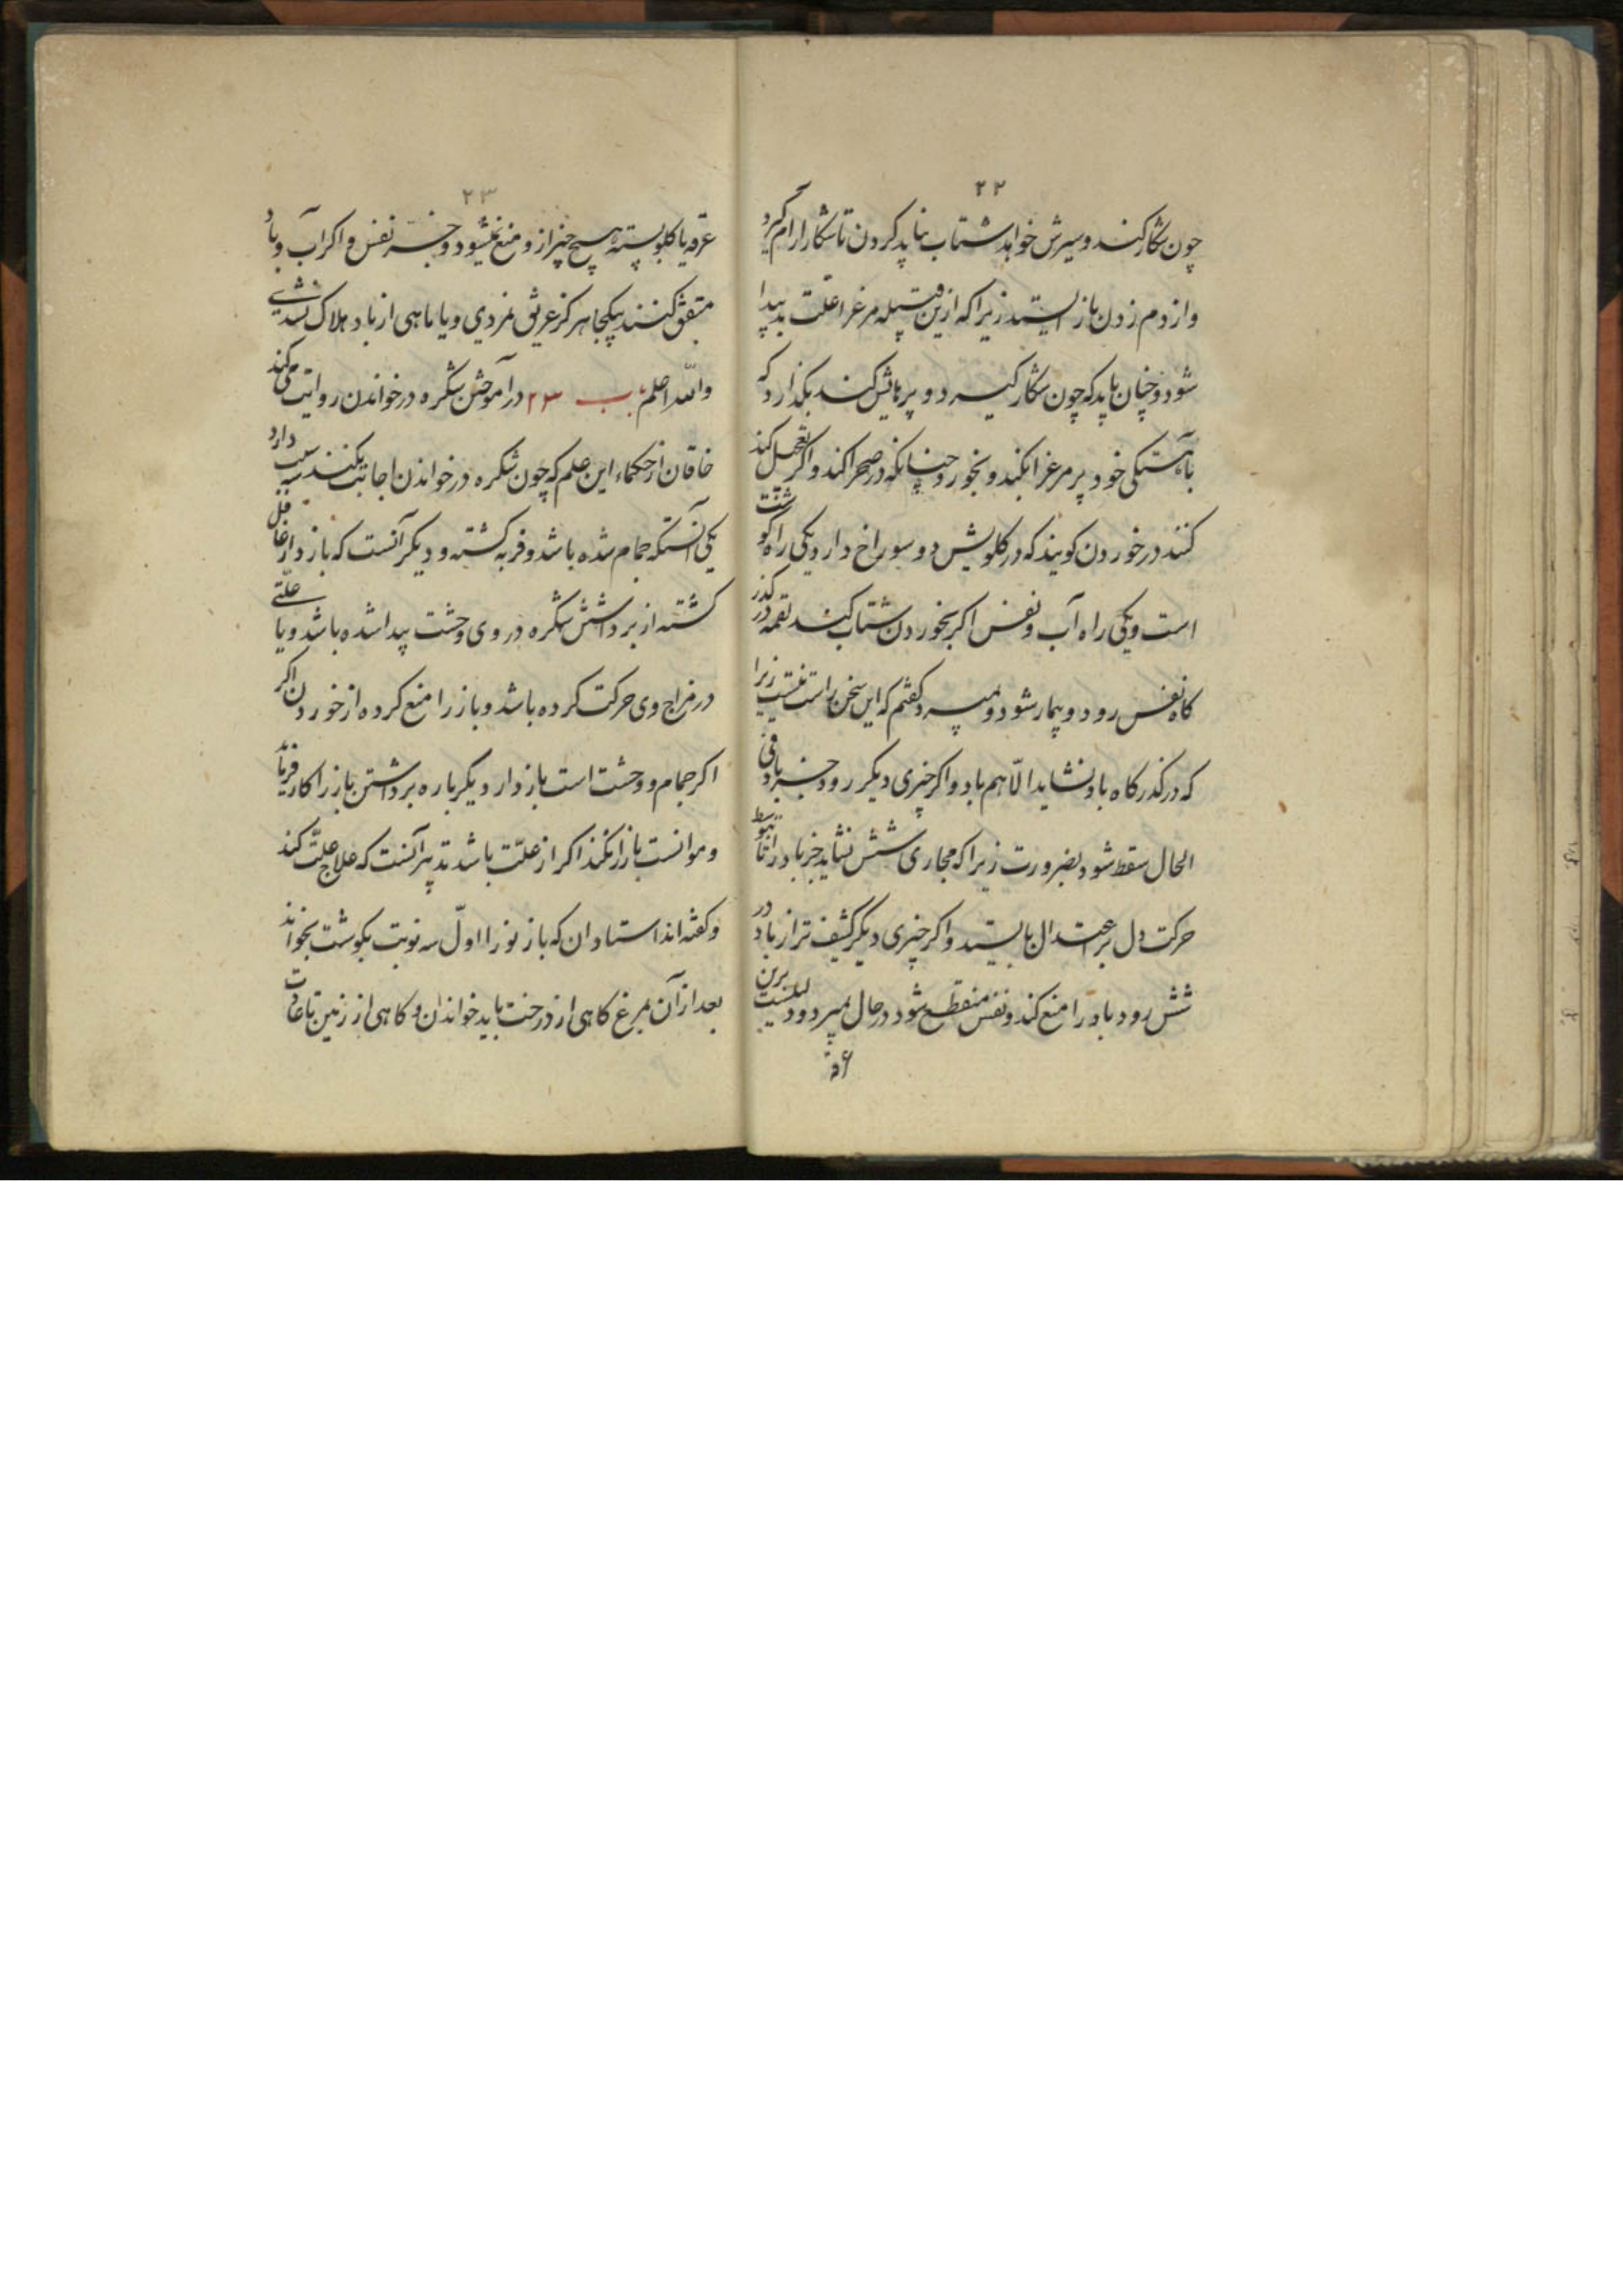 ۲۲
چون شکار کند و سیرش خواهد شتاب نباید کردن تا شکار آرام گیرد
و از دم زدن باز ایستد زیرا که ازین قبیله مرغ را علت پیدا
شود و چنان باید که چون شکار گیرد و پر مالش کند بگذارد که
باهستکی خود پر مرغ را بکند و بخورد چنانکه در صحرا کند و اگر تعجیل کند
کنند در خوردن کویند که در کلویش دو سوراخ دارد یکی راه کوشت
است و یکی راه آب و نفس اکر بخوردن شتاب کند لقمه در کذر
کاه نفس رود و بیمار شود و بمیرد کفتم که این سخن راست نیست زیرا
که در کذرکاه باد نشاید الّا هم باد و اکر چیزی دیکر رود جز باد فی
الحال سقط شود بضرورت زیرا که مجاری شش نشاید جز باد را تا بتوسط
حرکت دل بر اعتدال بایستد و اکر چیزی دیکر کثیف تر از باد در
شش رود باد را منع کند و نفس منقطع شود در حال بمیرد و دلیلست برین
۲۳
عرقه یا کلو بسته هیچ چیز ازو منع نمیشود جز نفس و اکر آب و باد
متفق کنند بیکجا هرکز غریق نمردی و یا ماهی از باد هلاک نشدی
والله اعلم باب ۲۳ در آموختن شکره در خواندن روایت کند
خاقان از حکماء این علم که چون شکره در خواندن اجابت نکند سه سبب دارد
یکی آنستکه جمام شده باشد و فربه کشته و دیکر آنست که بازدار غافل
کشته از برداشتن شکره در وی وحشت پیدا شده باشد و یا علّتی
در مزاج وی حرکت کرده باشد و باز را منع کرده از خوردن اکر
اکر جمام و وحشت است بازدار دیکرباره برداشتن باز را کار فرماید
و موانست باز را نکند اکر از علّت باشد تدبیر آنست که علاج علّت کند
و کفته اند استادان که باز نو را اوّل سه نوبت بکوشت بخواند
بعد از آن بمرغ کاهی از درخت باید خواندن و کاهی از زمین تا عادت